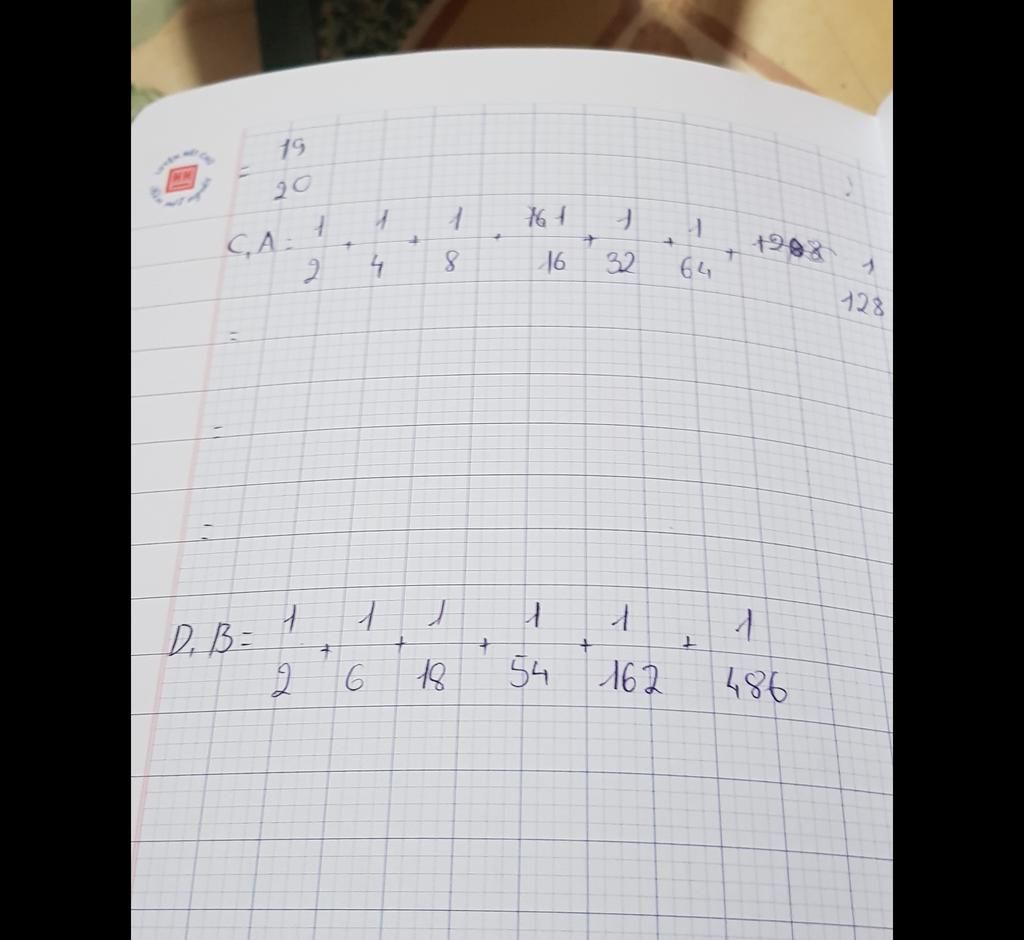 = 19/20
C, A = 1/2 + 1/4 + 1/8 + 1/16 + 1/32 + 1/64 + 1/128
=
=
=
D, B = 1/2 + 1/6 + 1/18 + 1/54 + 1/162 + 1/486